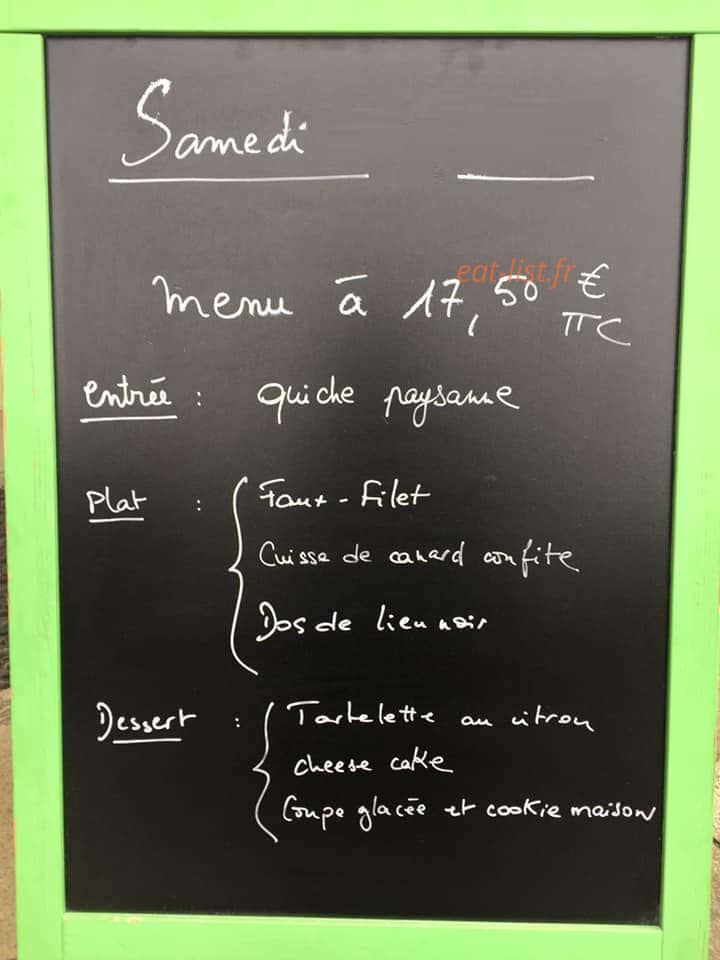 Samedi
eat-list.fr
menu à 17,50 €
TTC
entrée : quiche paysanne
Plat : Faux-Filet
Cuisse de canard confite
Dos de lieu noir
Dessert : Tartelette au citron
cheese cake
Coupe glacée et cookie maison